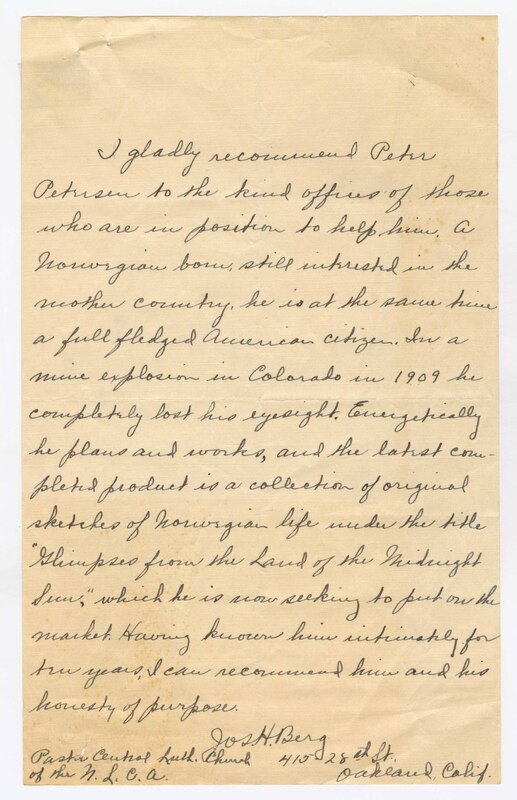 I gladly recommend Peter
Petersen to the kind offices of those
who are in position to help him. A
Norwegian born, still interested in the
mother country, he is at the same time
a full fledged American citizen. In a
mine explosion in Colorado in 1909 he
completely lost his eyesight. Energetically
he plans and works, and the latest com-
pleted product is a collection of original
sketches of Norwegian life under the title
"Glimpses from the Land of the Midnight
Sun", which he is now seeking to put on the
market. Having known him intimately for
ten years, I can recommend him and his
honesty of purpose.
Jos H. Berg
Pastor Central Luth. Church 415 28th St.
of the N. L. C. A. Oakland, Calif.